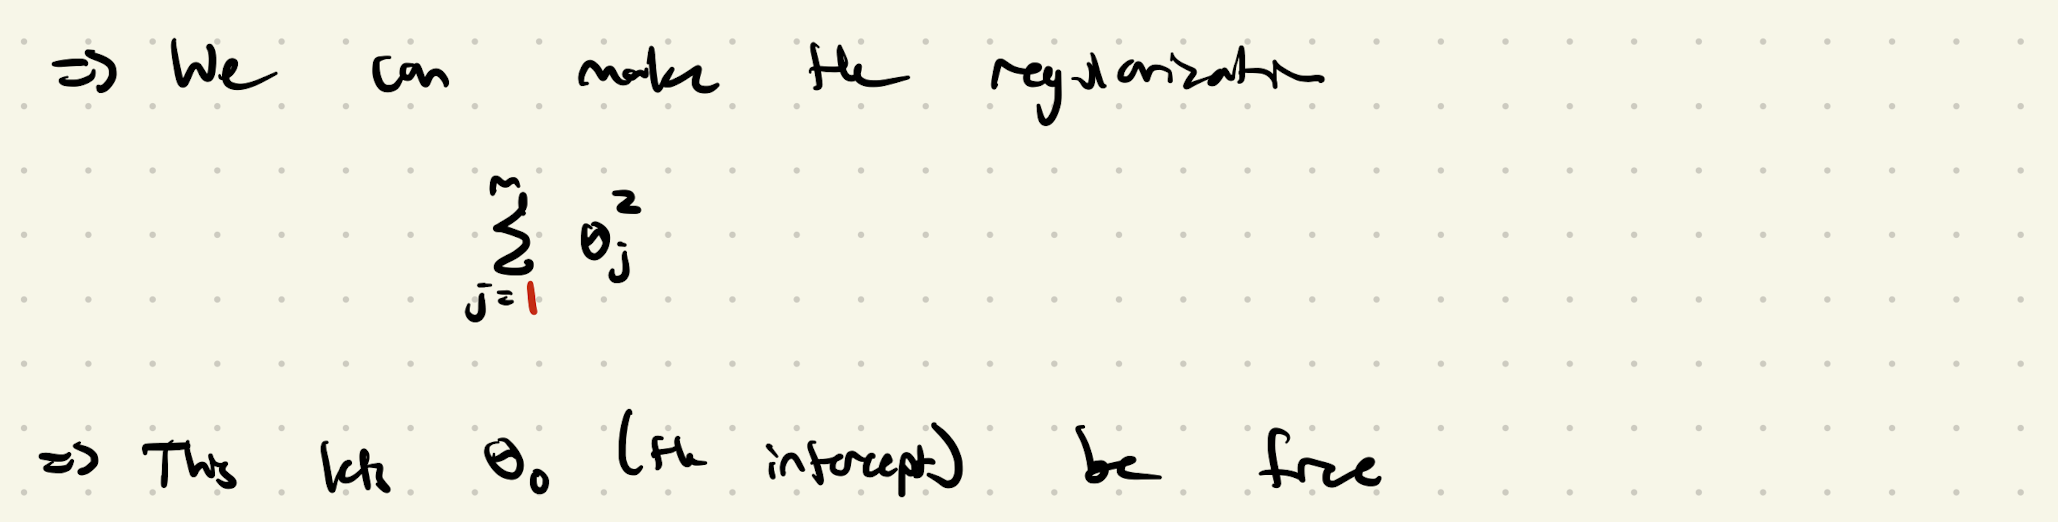 ⇒ We can make the regularization
n
∑ θj²
j=1
⇒ This lets θ₀ (the intercept) be free